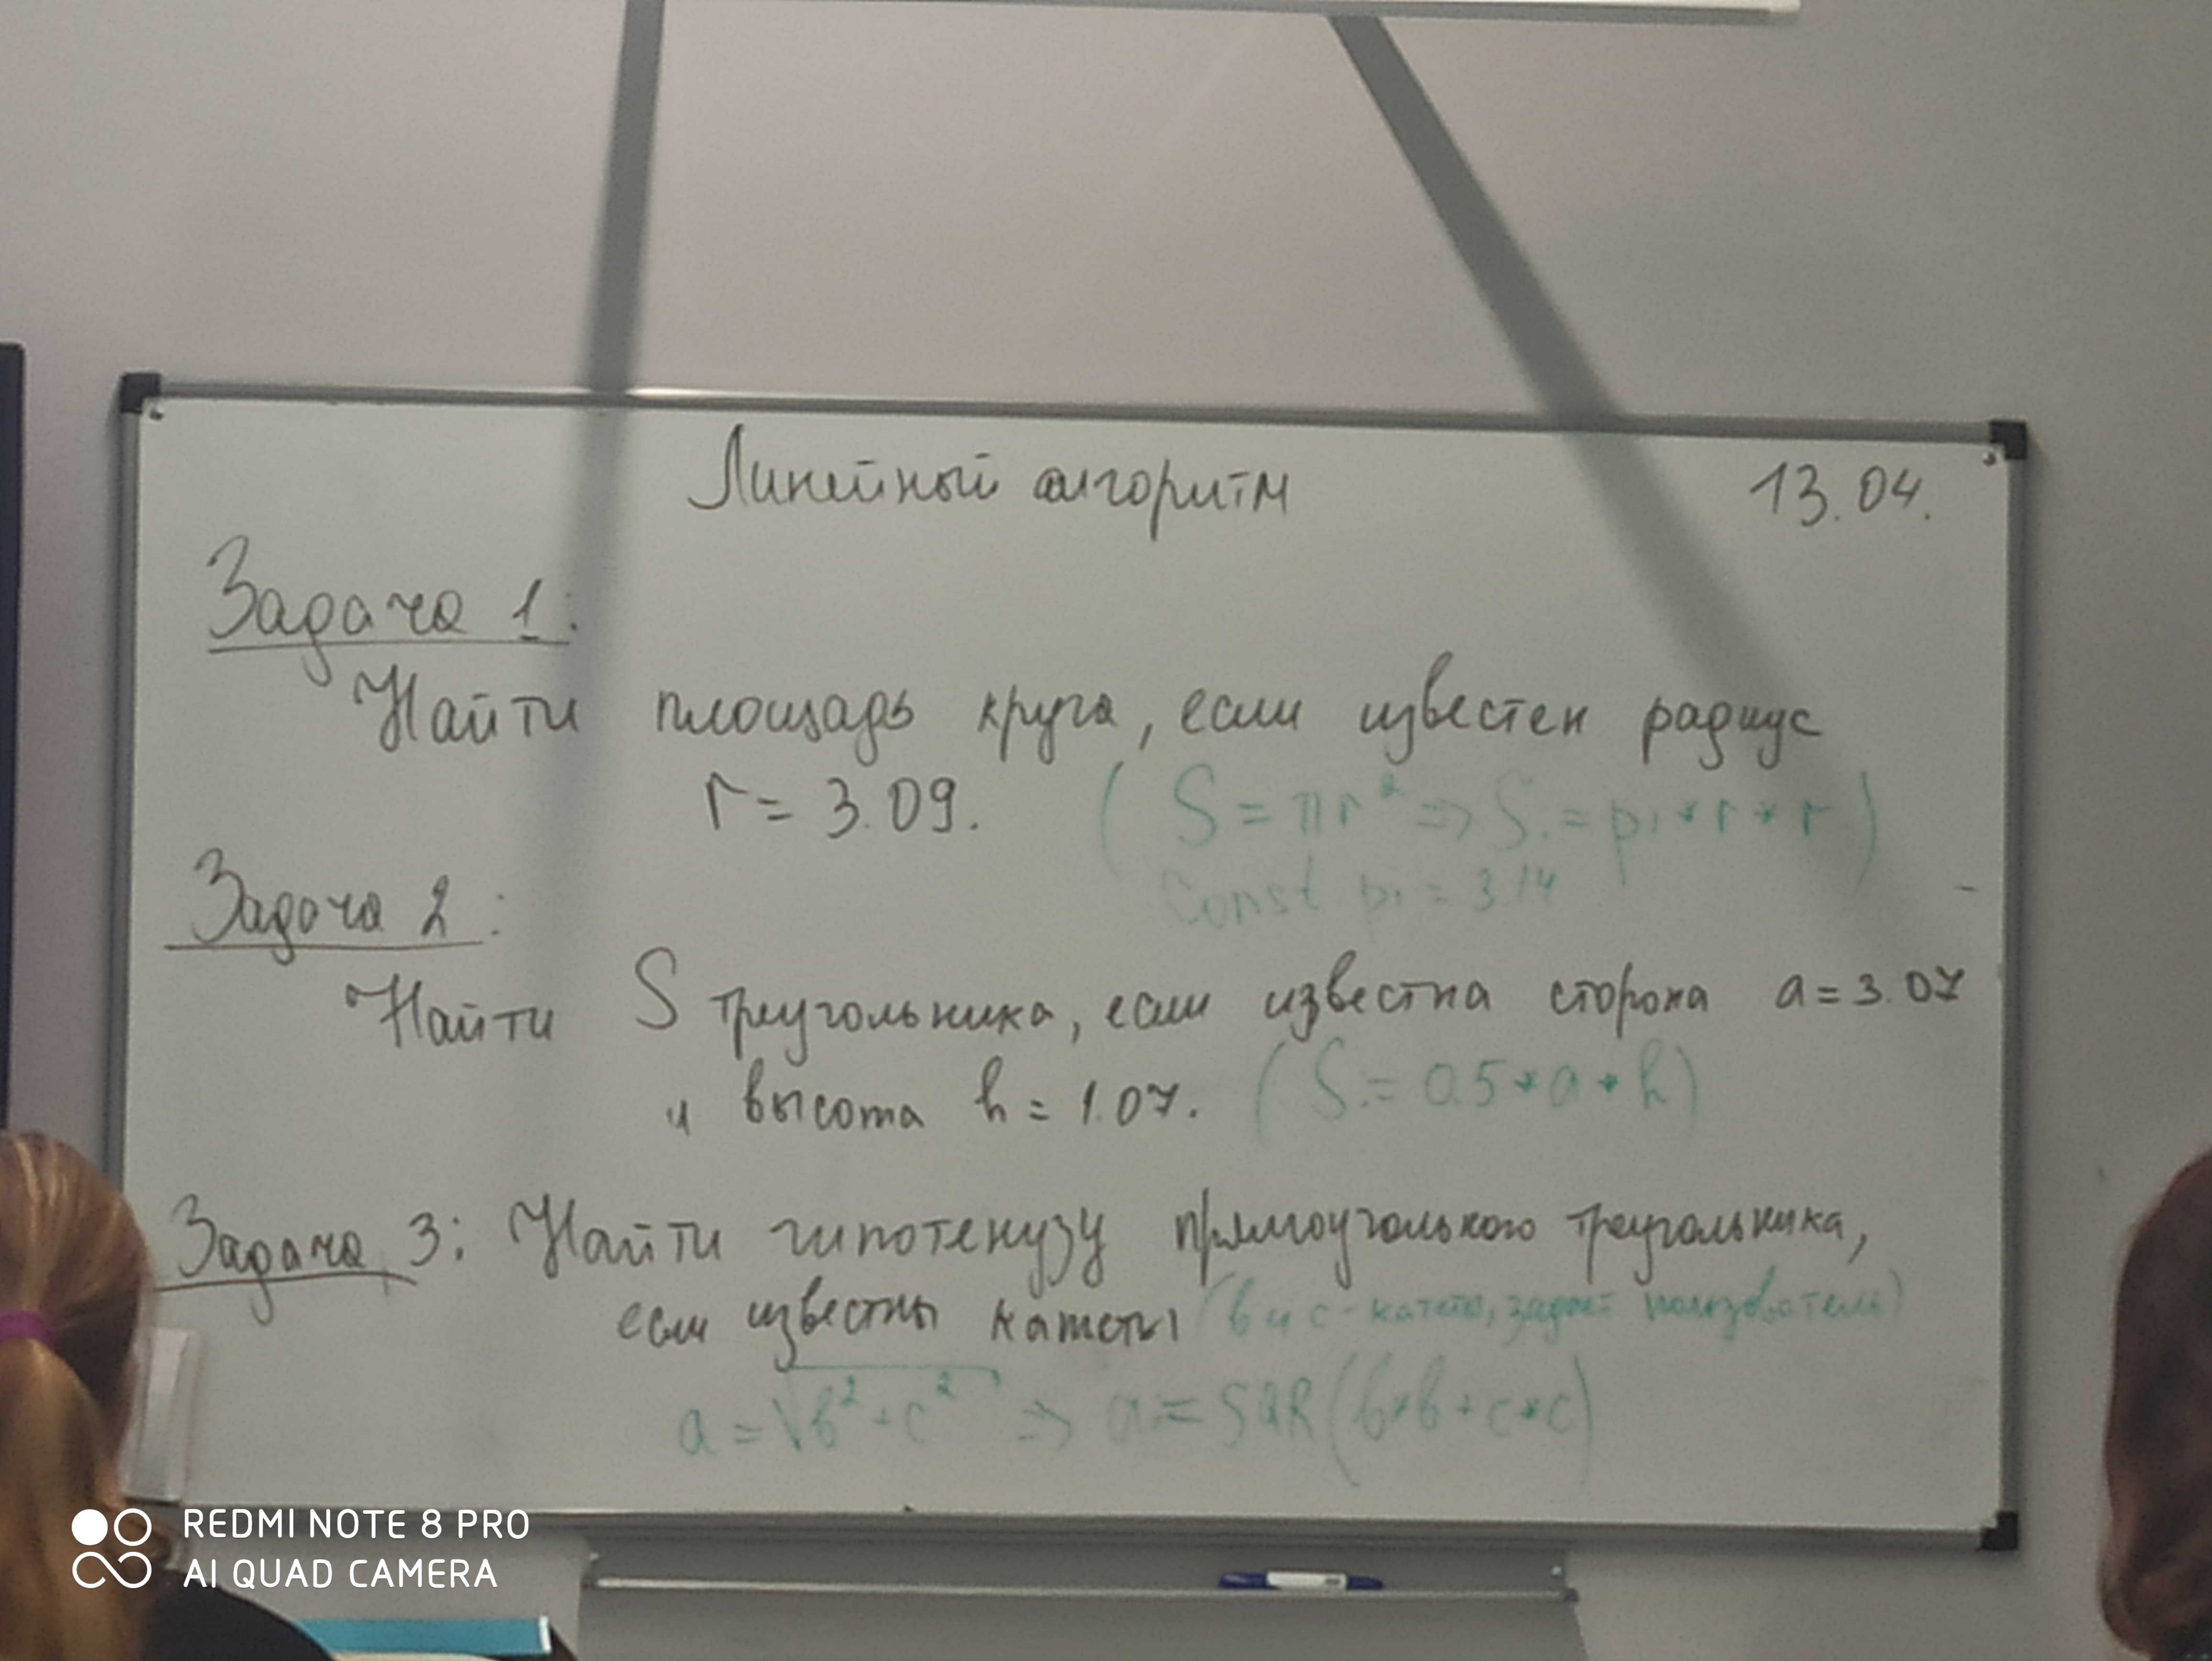 Линейный алгоритм 13.04.
Задача 1:
Найти площадь круга, если известен радиус
r = 3.09. ( S = πr² => S := pi * r * r )
Const pi = 3.14
Задача 2:
Найти S треугольника, если известна сторона a = 3.07
и высота h = 1.07. ( S := 0.5 * a * h )
Задача 3: Найти гипотенузу прямоугольного треугольника,
если известны катеты (b и c - катеты, задает пользователь)
a = √b² + c² => a := SQR (b*b + c*c)
REDMI NOTE 8 PRO
AI QUAD CAMERA